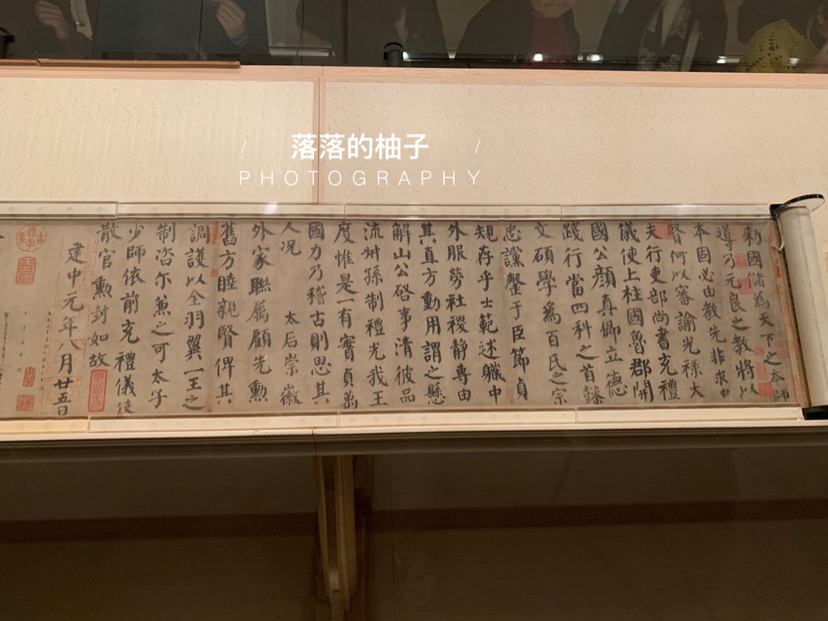 落落的柚子
PHOTOGRAPHY
勑國儲為天下之本師
導乃元良之教將以
本固必由教先非求忠
賢何以審諭光祿大
夫行吏部尚書充禮
儀使上柱國魯郡開
國公顏真卿立德
踐行當四科之首懿
文碩學為百氏之宗
忠讜罄于臣節貞
規存乎士範述軄中
外服勞社稷靜專由
其直方動用謂之懸
解山公啓事清彼品
流叔孫制禮光我王
度惟是一有實貞萬
國力乃稽古則思其
人况 太后崇徽
外家聯屬顧先勳
舊方睦親賢俾其
調護以全羽翼一王之
制咨尔兼之可太子
少師依前充禮儀使
散官勳封如故
建中元年八月廿五日